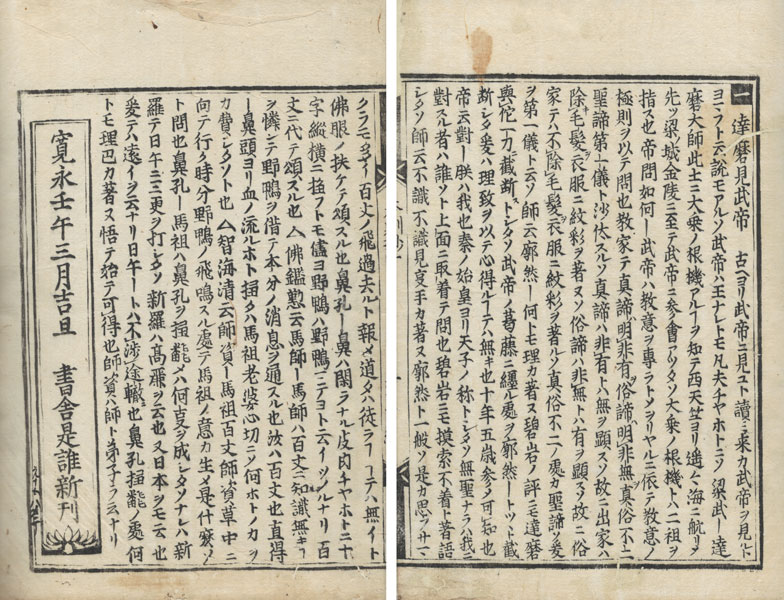 一 達磨見武帝 古ヘヨリ武帝ニ見ユト讀ミ来カ武帝ヲ見ルト
ヨミタト云説モアルソ武帝ハ王ナレトモ凡夫チヤホトニソ 梁武―達
磨大師此土ニ大乗ノ根機アル―ヲ知テ西天竺ヨリ遥々海ニ航リ
先ツ梁城金陵ニ至テ武帝ニ参會アツタソ大乗ノ根機トハ二祖ヲ
指ス也 帝問如何―武帝ハ教意ヲ專ラトメヲリヤルニ依テ教意ノ
極則ヲ以テ問也教家テ真諦以明非有俗諦以明非無真俗不二
聖諦第一儀ト沙汰スルソ真諦ハ非有トハ無ヲ顕スソ故ニ出家ハ
除毛髪衣服ニ紋彩ヲ著ヌソ俗諦ハ非無トハ有ヲ顕スソ故ニ俗
家テハ不除毛髪衣服ニ紋彩ヲ著ルソ真俗不二ノ處カ聖諦ソ爰
ヲ第一儀ト云ソ 師云廓然―何トモ理カ著ヌ碧岩ノ評ニモ達磨
與佗一刀截断トシタソ武帝ノ葛藤ニ纏ル處ヲ廓然―トツト截
断シタソ爰ハ理致ヲ以テ心得ル―テハ無イ也十年五歳参メ可知也
帝云對―朕ハ我也秦ノ始皇ヨリ天子ノ称トシタソ無聖ナラハ我ニ
對スル者ハ誰ソト上面ニ取着テ問也碧岩ニモ摸索不着ト著語
シタソ 師云不識 不識見夏手カ著ヌ廓然ト一般ソ是カ思フサマ
クラモヨイ 百丈ノ飛過去ルト報メ道タハ徒ラ―テハ無イト
佛眼ノ扶ケテ頌スル也 鼻孔―鼻ハ閙ラナル皮肉チヤホトニ十
字縱横ニ搊フトモ儘ヨ野鴨ハ野鴨ニテヨト云イツルナリ 百
丈ニ代テ頌スル也 △佛鑑懃云馬師―馬師ハ百丈ニ知識無キ
ヲ憐ンテ野鴨ヲ借テ本分ノ消息ヲ通スル也 汝ハ百丈也 直得
―鼻頭ヨリ血ノ流ルホト搊タハ馬祖老婆心切ニソ何ホトノカヲ
カ費シタソト也 △智海清云師資―馬祖百丈師資草中ニ
向テ行ク時分野鴨ノ飛鳴スル處テ馬祖ノ意カ生メ是什麼ソ
ト問也 鼻孔―馬祖ハ鼻孔ヲ搊メハ何叓ヲ成シタソナレハ新
羅テ日午ニ三更ヲ打シタソ 新羅ハ髙麗ヲ云也又日本ヲモ云也
爰テハ遠イヲ云ナリ 日午―トハ不渉途轍也鼻孔搊ル處何
トモ理巴カ著ヌ悟テ始テ可得也師資師ト弟子ヲ云ナリ
寛永壬午三月吉旦 書舎是誰新刊